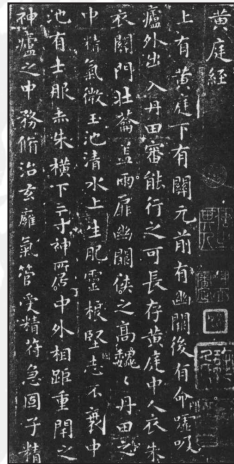 黄庭經
上有黄庭下有關元前有幽闕後有命噓吸
廬外出入丹田審能行之可長存黄庭中人衣朱
衣關門壯籥蓋兩扉幽闕俠之高巍〻丹田之
中精氣微玉池清水上生肥靈根堅志不衰中
池有士服赤朱橫下三寸神所居中外相距重閉之
神廬之中務脩治玄廱氣管受精符急固子精